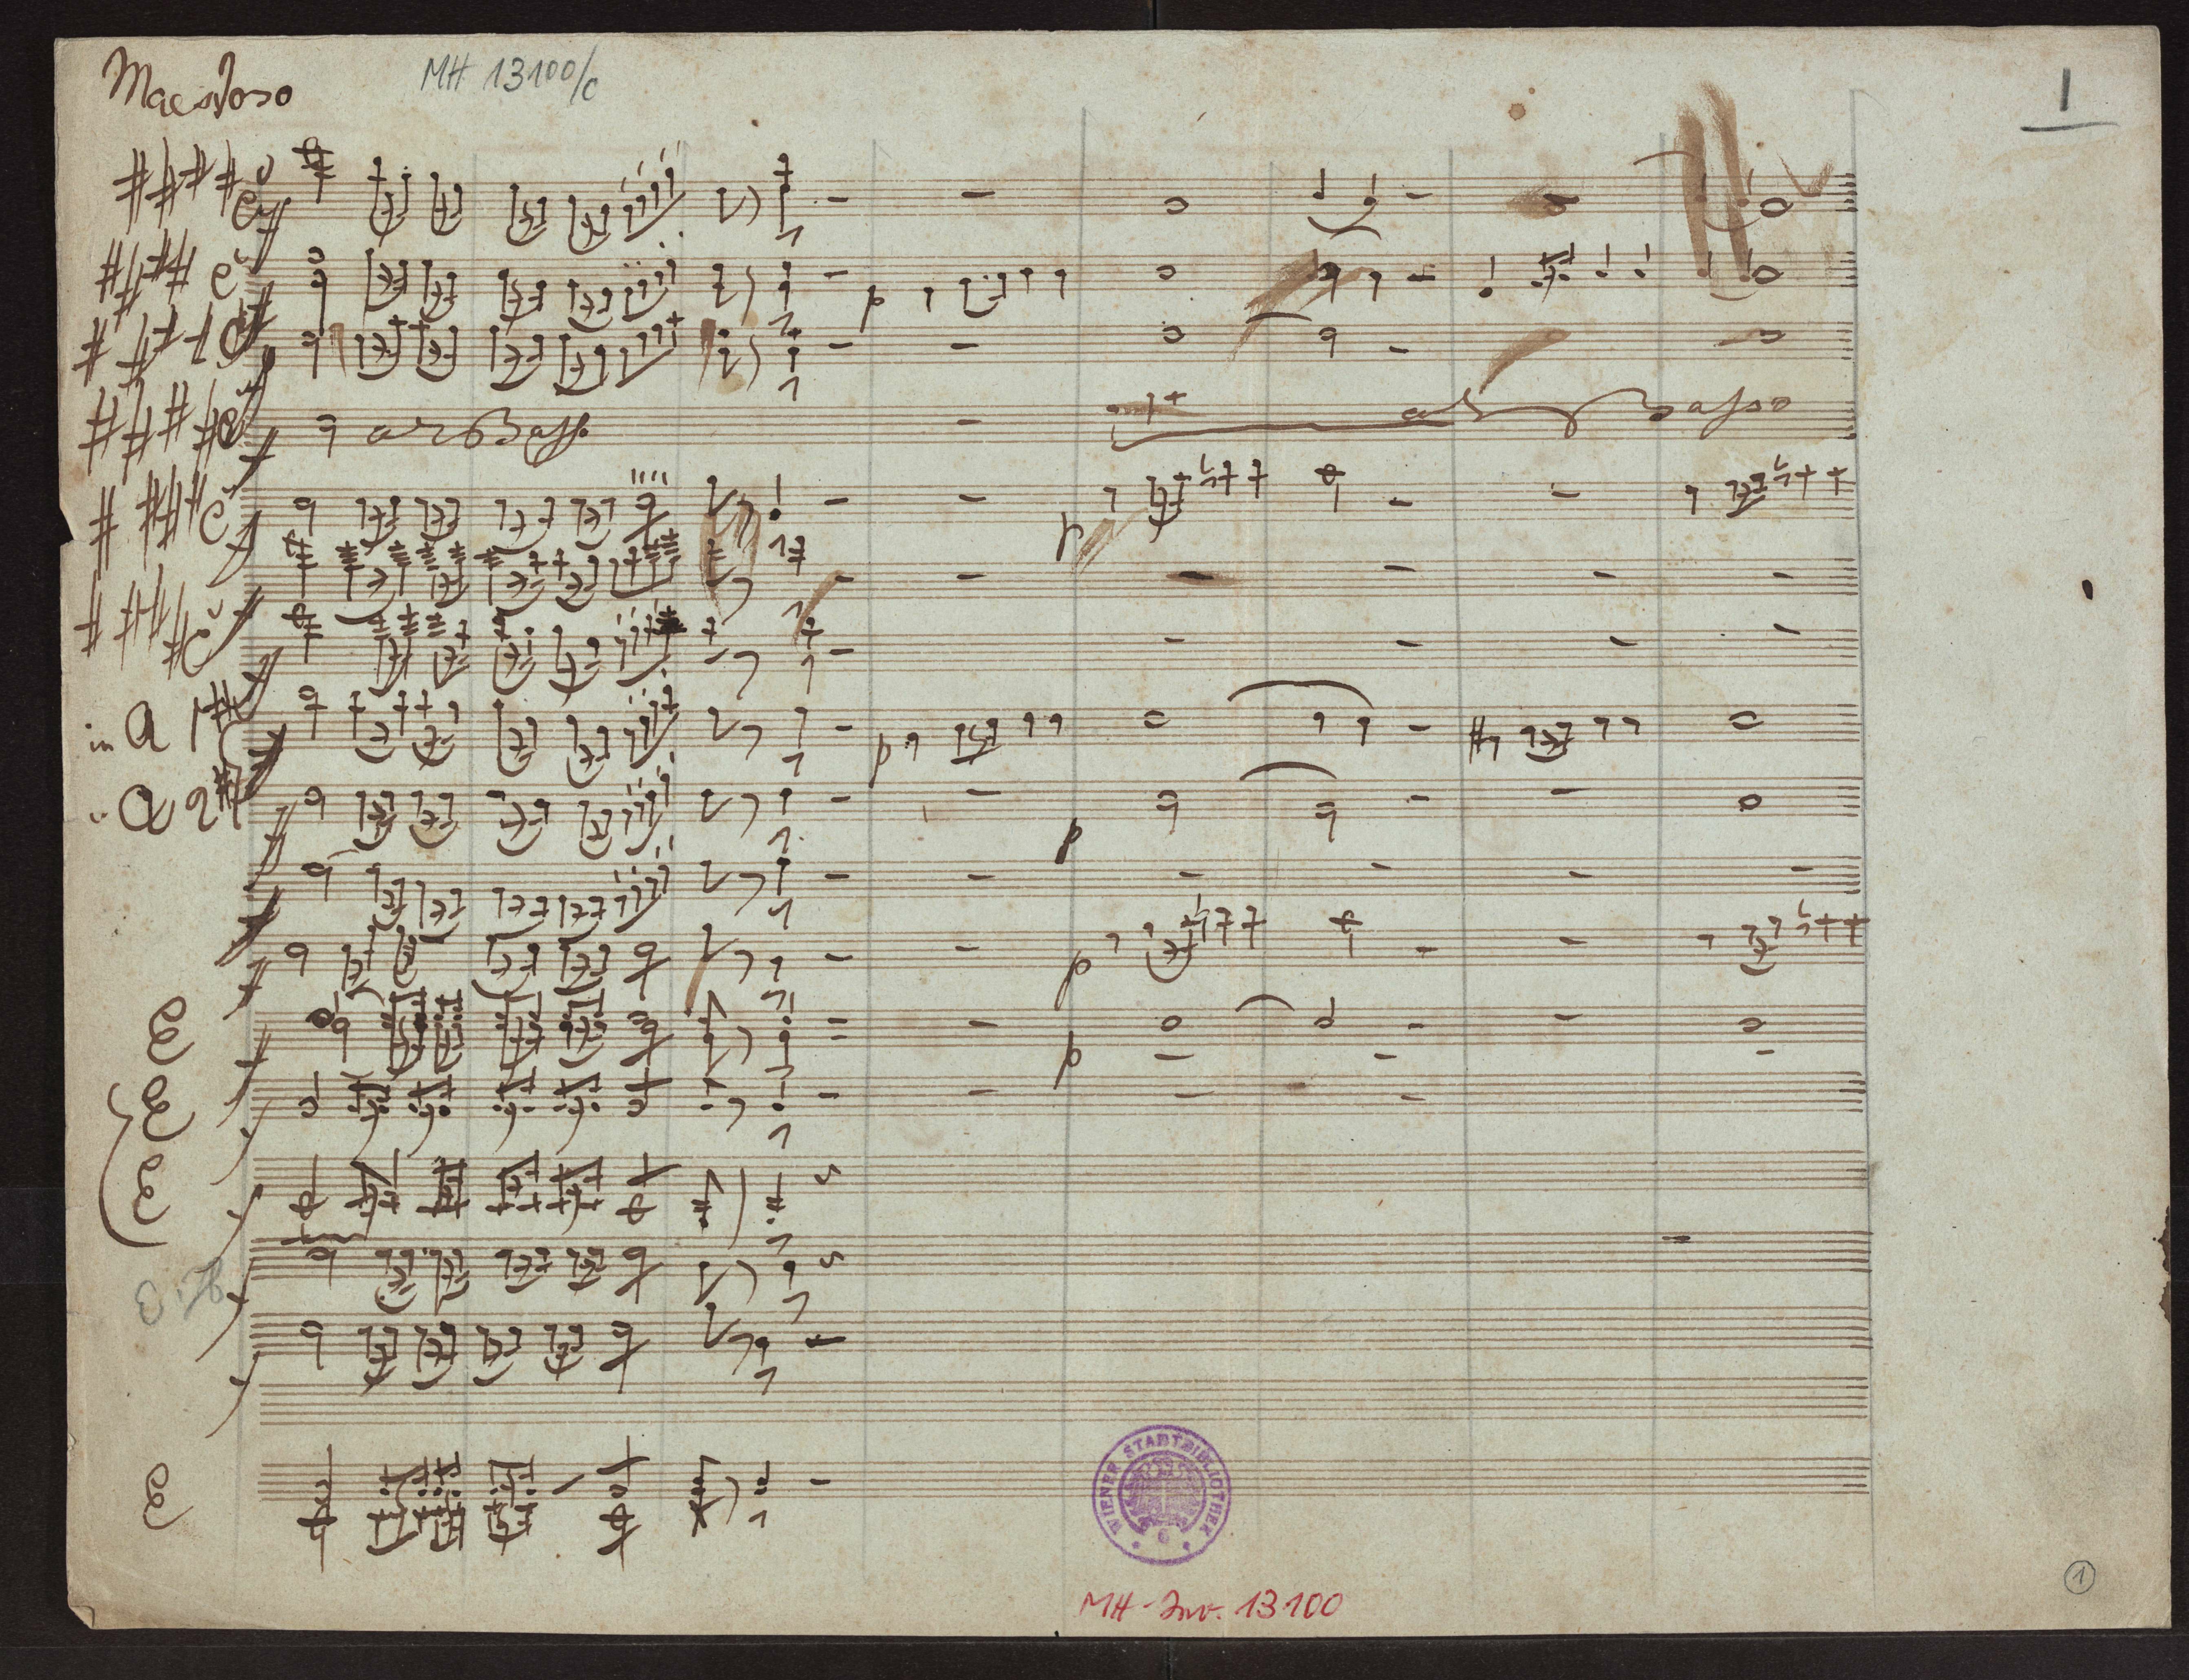 Maestoso
MH 13100/c
1
p
al Basso
al Basso
p
in A
p
in A
p
p
p
WIENER STADTBIBLIOTHEK
MH-Inv. 13100
1